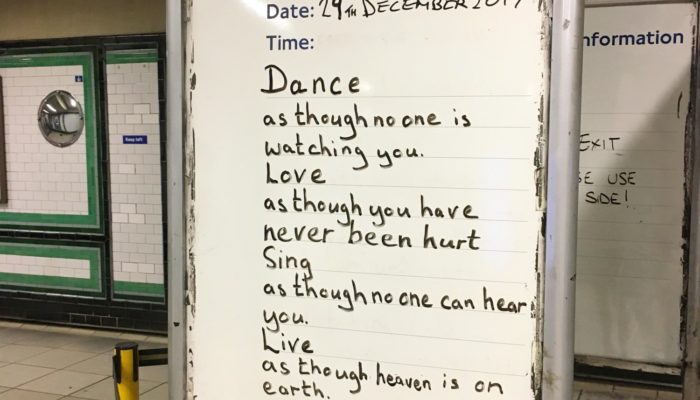 Date: 29TH DECEMBER 2017
Time:
Dance
as though no one is
watching you.
Love
as though you have
never been hurt
Sing
as though no one can hear
you.
Live
as though heaven is on
earth.
Keep left
nformation
EXIT
SE USE
SIDE!